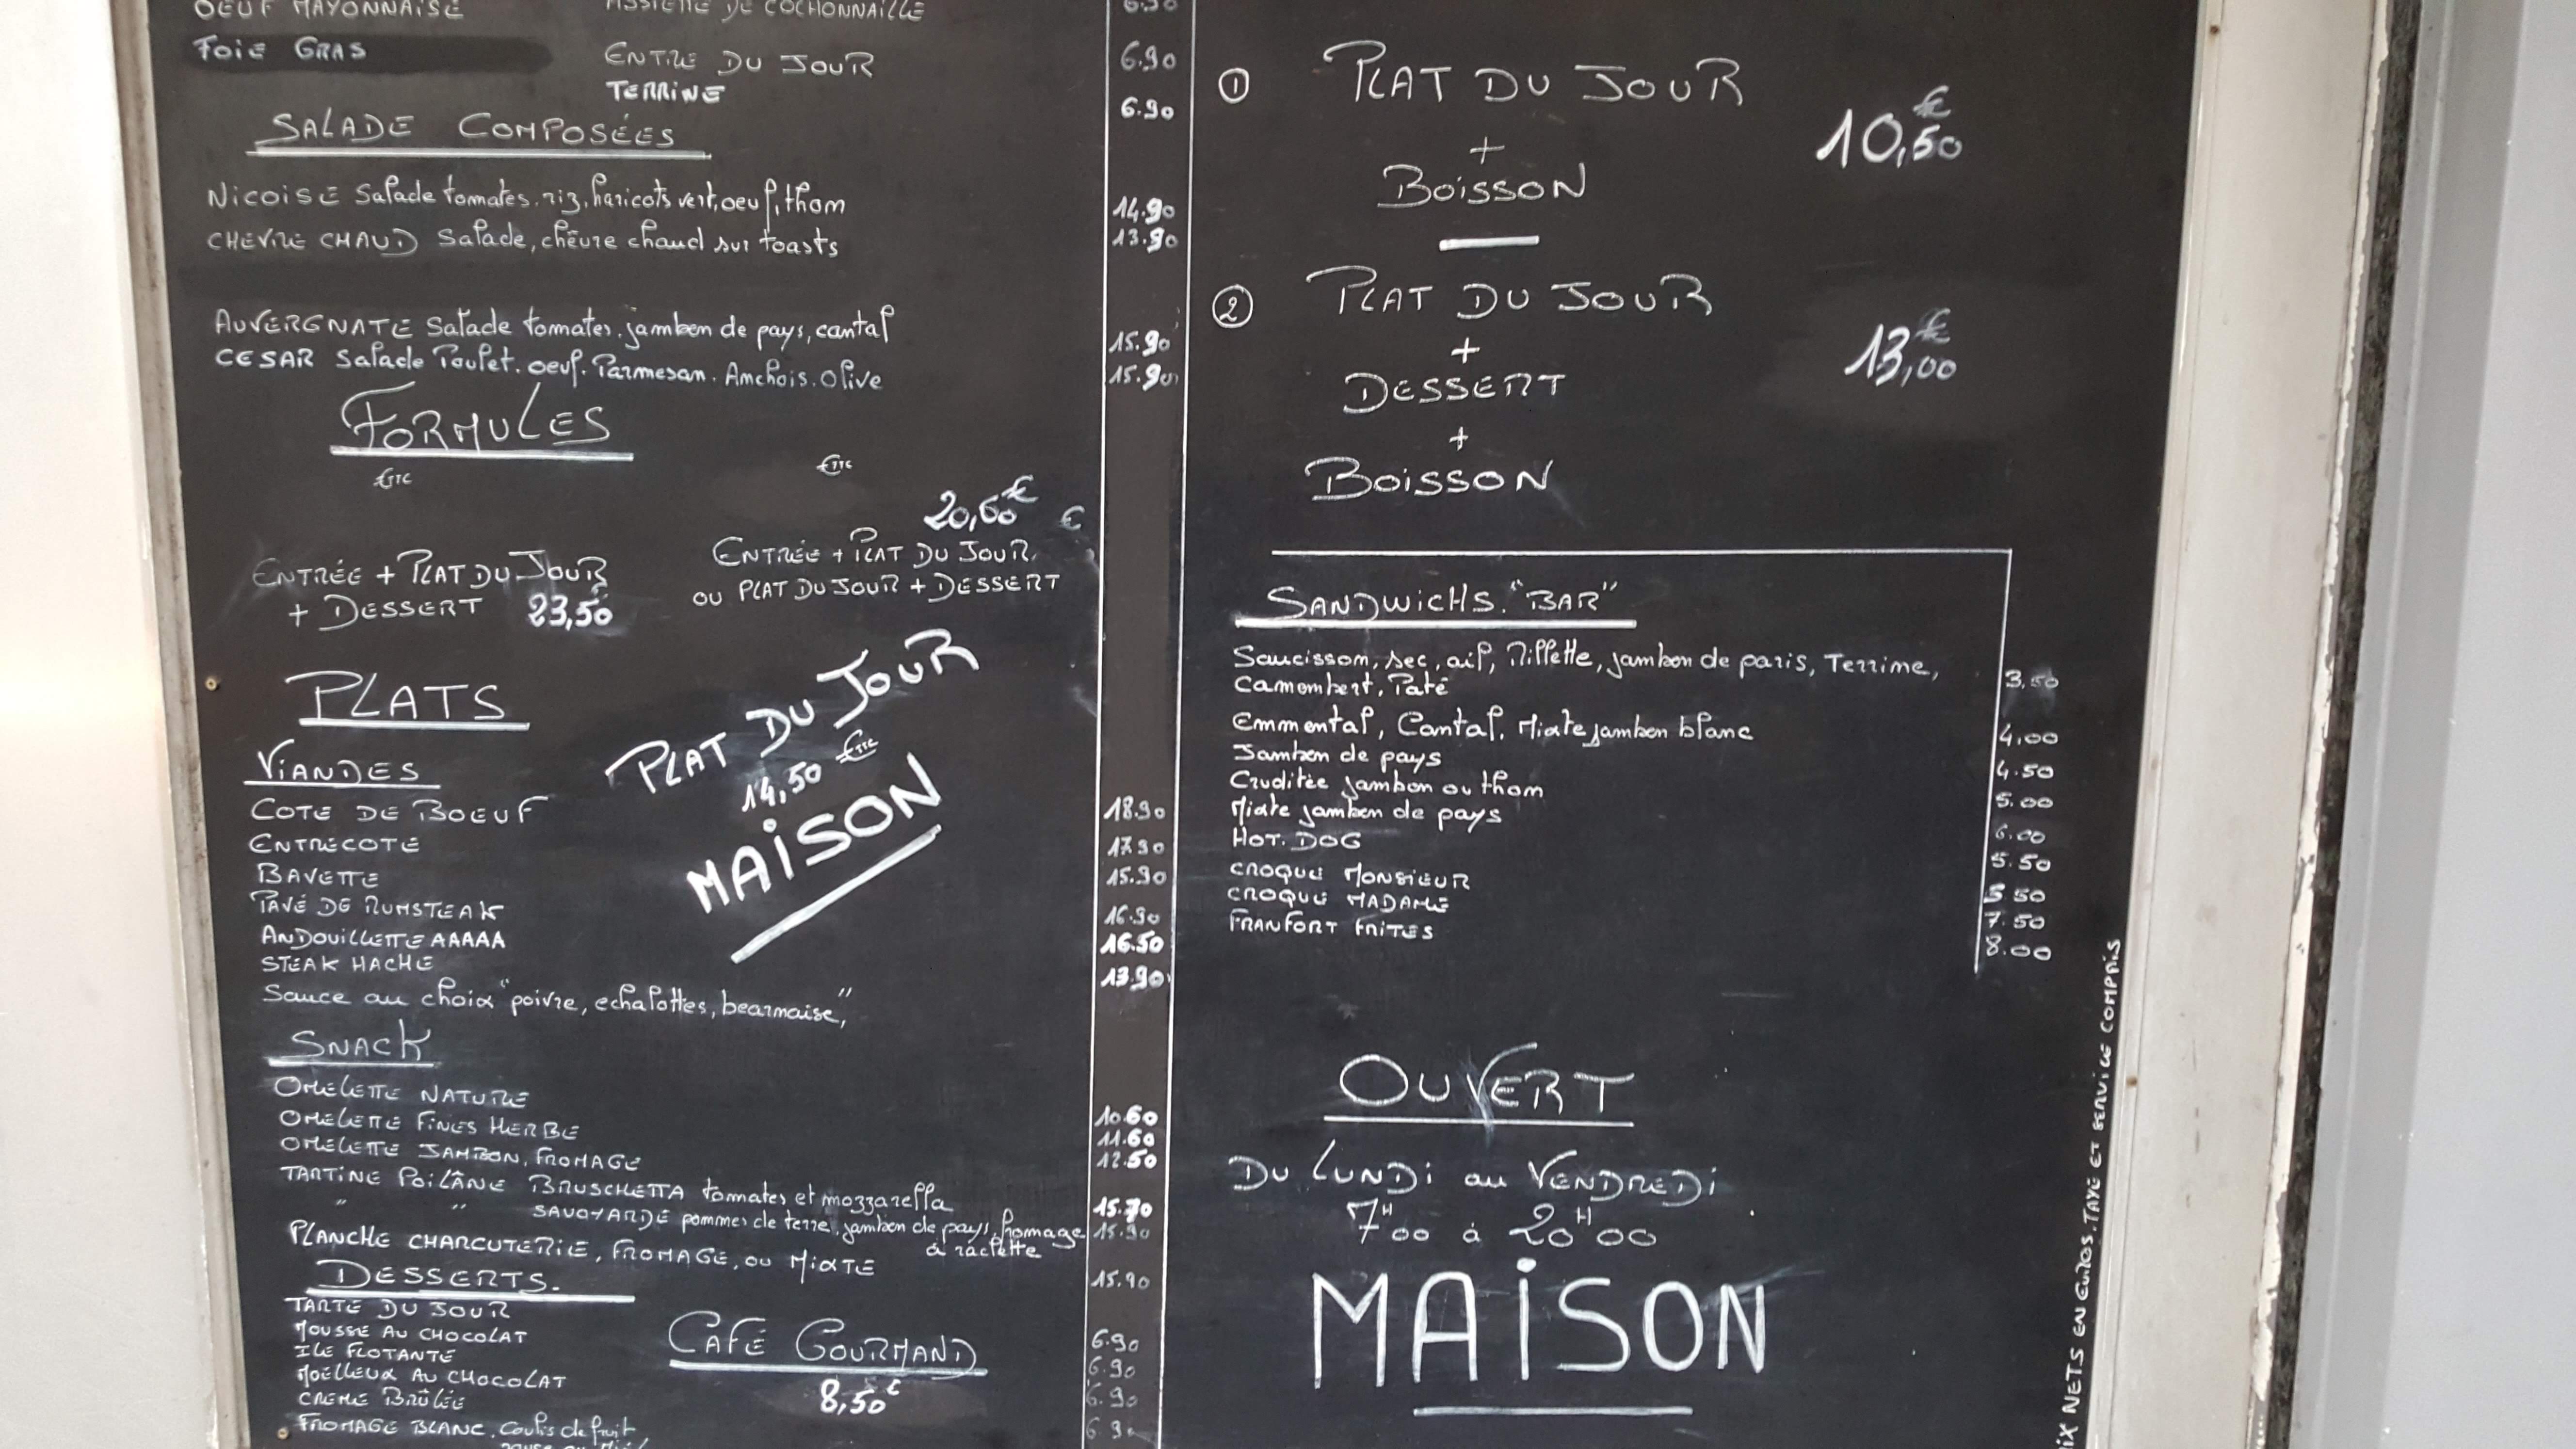 OEUF MAYONNAISE
ASSIETTE DE COCHONNAILLE 6.90
FOIE GRAS
ENTRE DU JOUR 6.90
TERRINE 6.90
SALADE COMPOSÉES
NICOISE Salade tomates.riz,haricots vert,oeuf,thon 14.90
CHEVRE CHAUD Salade, chêvre chaud sur toasts 13.90
AUVERGNATE Salade tomates.jambon de pays, cantal 15.90
CESAR Salade Poulet.oeuf.Parmesan.Anchois.Olive 15.90
FORMULES
€TTC
€TTC
ENTRÉE + PLAT DU JOUR
+ DESSERT 23,50
20,60€ €
ENTRÉE + PLAT DU JOUR
OU PLAT DU JOUR + DESSERT
PLATS
PLAT DU JOUR
14,50 €TTC
MAISON
VIANDES
COTE DE BOEUF 18.90
ENTRECOTE 17.90
BAVETTE 15.90
PAVÉ DE RUMSTEAK 16.90
ANDOUILLETTE AAAAA 16.50
STEAK HACHE 13.90
Sauce au choix "poivre, echalottes, bearnaise,"
SNACK
OMELETTE NATURE 10.60
OMELETTE FINES HERBE 11.60
OMELETTE JAMBON, FROMAGE 12.50
TARTINE POILÂNE BRUSCHETTA tomates et mozzarella 15.70
" " SAVOYARDE pommes de terre, jambon de pays, fromage 15.90
à raclette
PLANCHE CHARCUTERIE, FROMAGE, OU MIXTE 15.90
DESSERTS.
TARTE DU JOUR 6.90
MOUSSE AU CHOCOLAT 6.90
ILE FLOTANTE 6.90
MOËLLEUX AU CHOCOLAT 6.90
CREME BRÛLÉE
FROMAGE BLANC, Coulis de fruit
CAFÉ GOURMAND
8,50€
① PLAT DU JOUR
+
BOISSON
10,50€
② PLAT DU JOUR
+
DESSERT
+
BOISSON
13,00€
SANDWICHS."BAR"
Saucisson, sec, ail, Rillette, jambon de paris, Terrine,
Camembert, Paté 3,50
Emmental, Cantal, Mixte jambon blanc 4,00
Jambon de pays 4.50
Cruditée jambon ou thon 5.00
Mixte jambon de pays 6.00
HOT. DOG 5.50
CROQUE MONSIEUR 5.50
CROQUE MADAME 7.50
FRANFORT FRITES 8.00
OUVERT
DU LUNDI au VENDREDI
7H00 à 20H00
MAISON
IX NETS EN EUROS.TAXE ET SERVICE COMPRIS